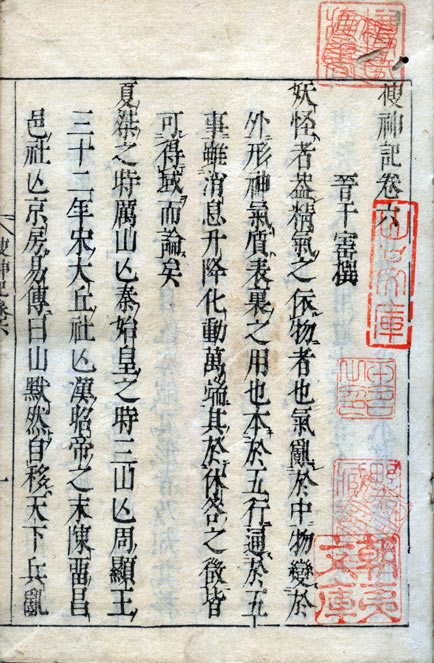 搜神記卷六
晉干寶撰
妖怪者葢精氣之依物者也氣亂於中物變於
外形神氣質表裏之用也本於五行通於五
事雖消息升降化動萬端其於休咎之徵皆
可得域而論矣
夏桀之時厲山亾秦始皇之時三山亾周顯王
三十二年宋大丘社亾漢昭帝之末陳畱昌
邑社亾京房易傳曰山默然自移天下兵亂
搜神記卷六
一